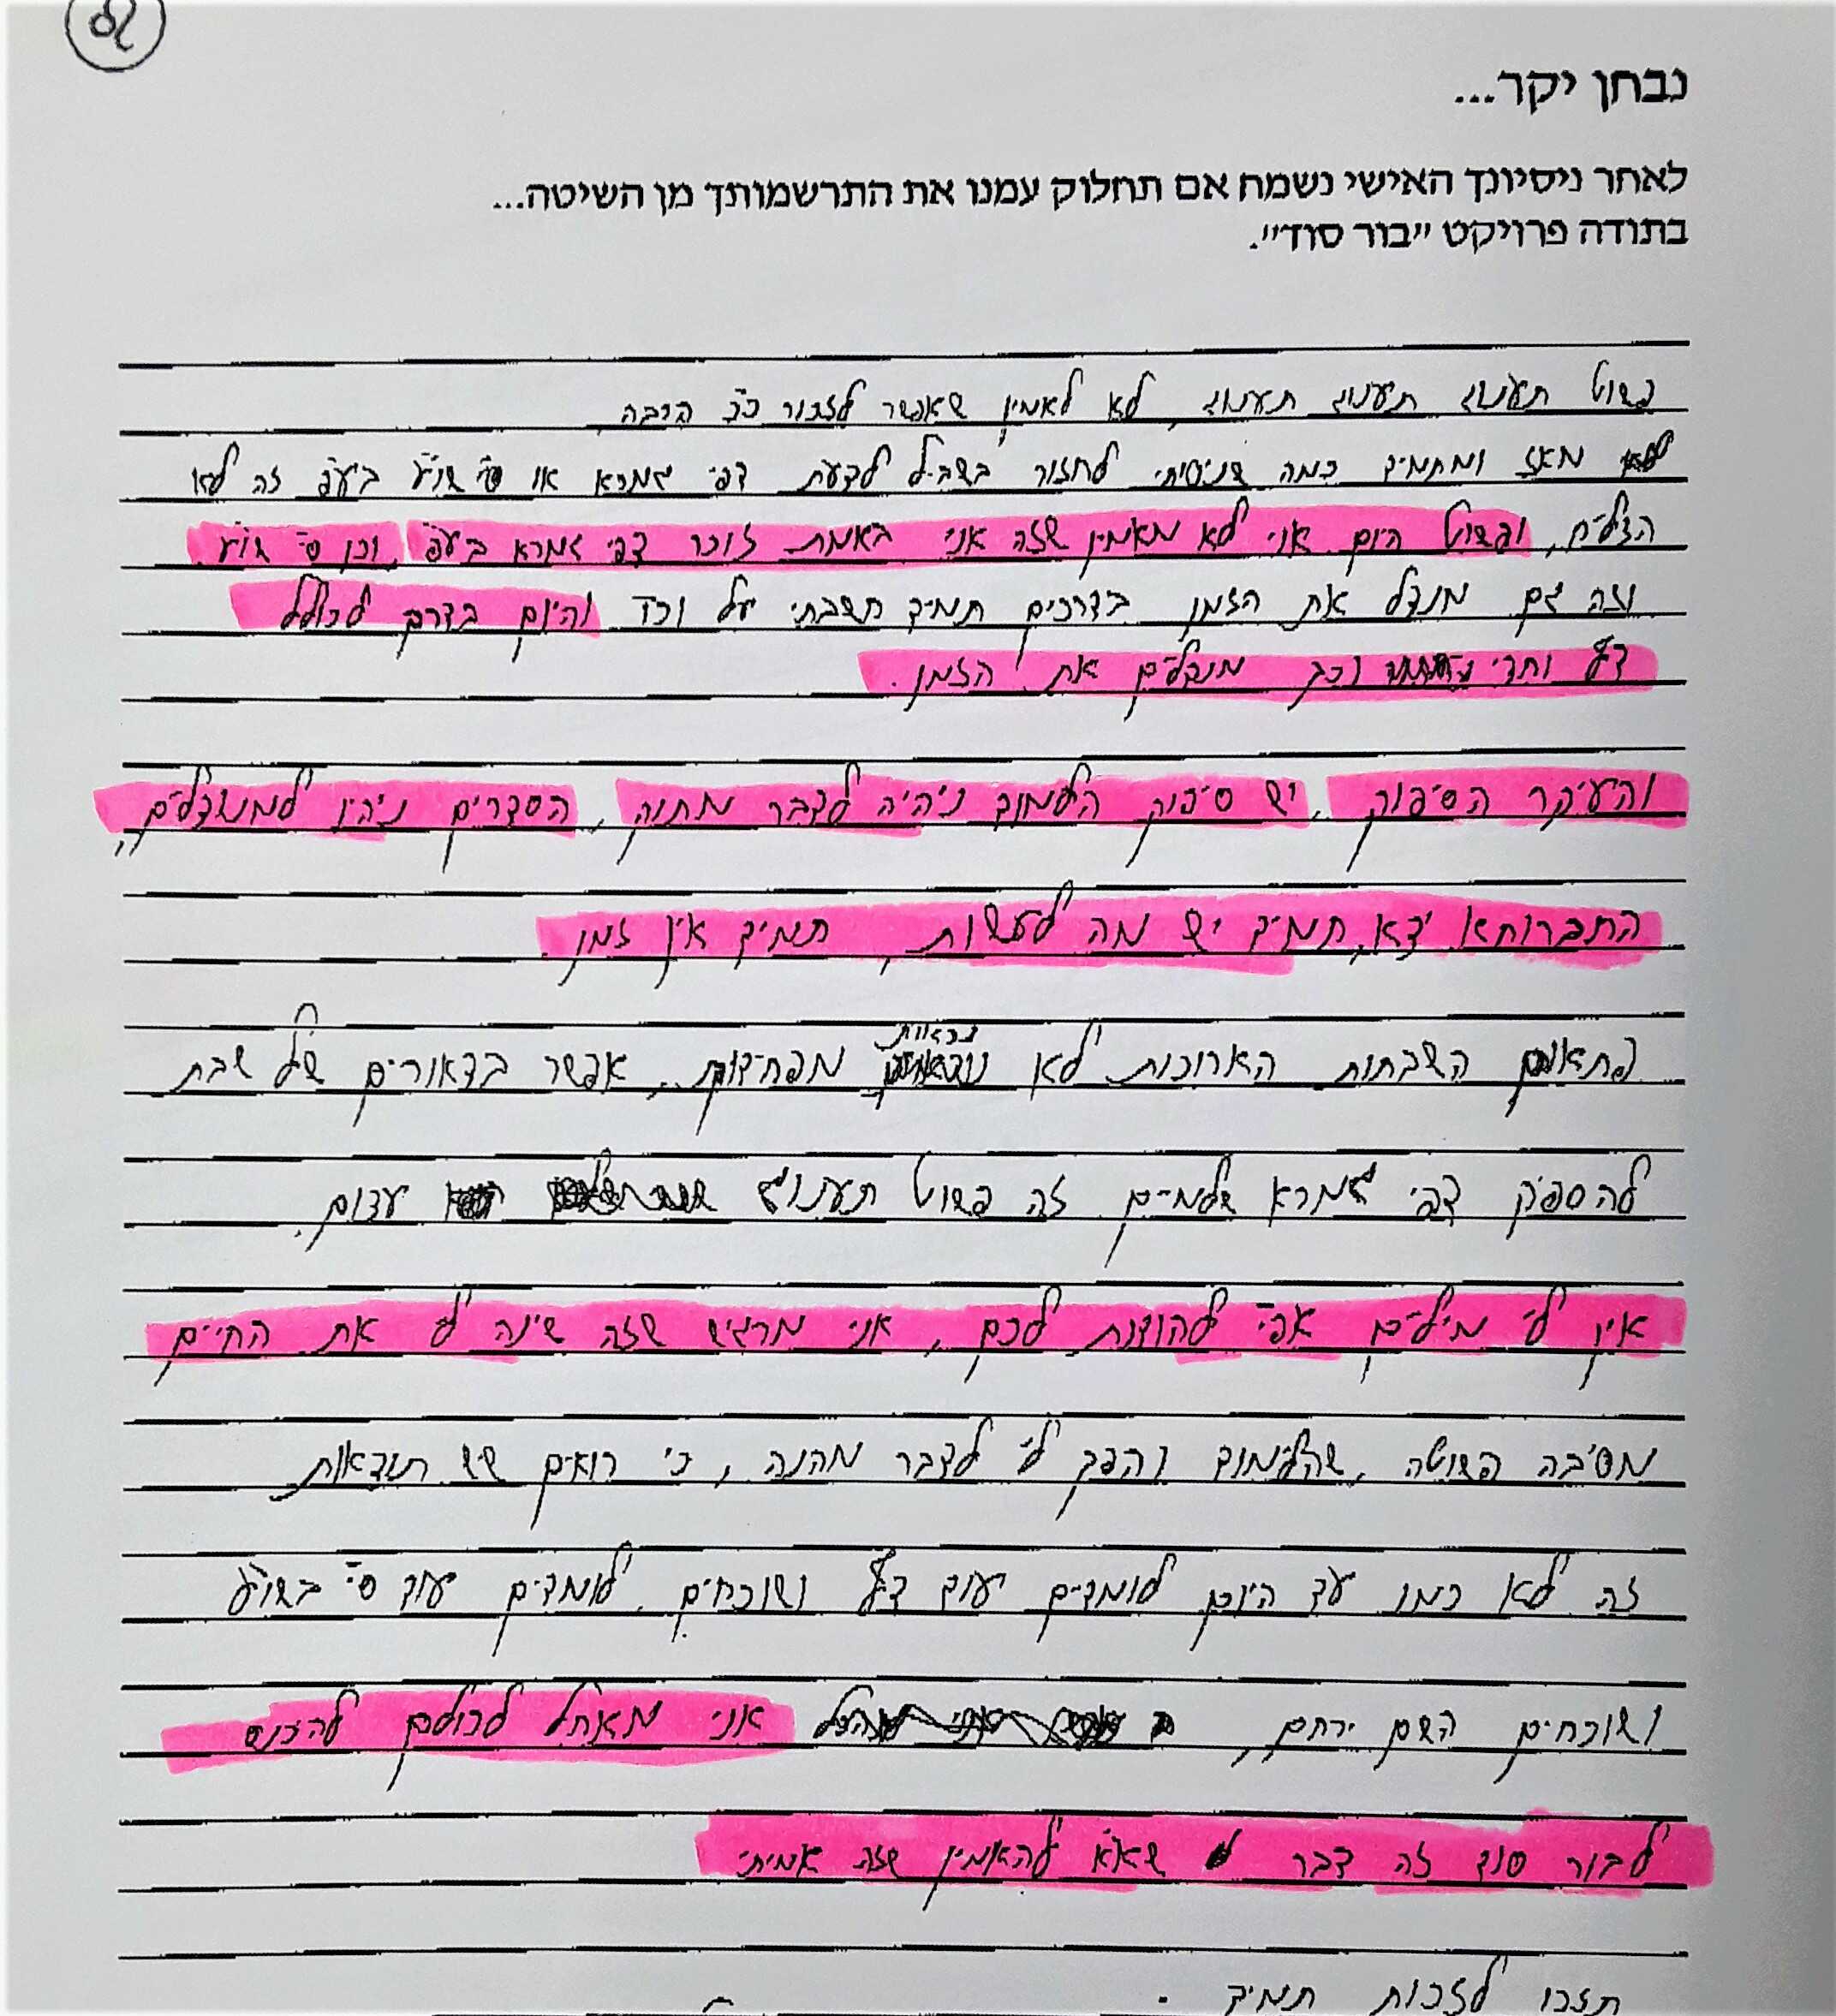 נבחן יקר...
לאחר ניסיונך האישי נשמח אם תחלוק עמנו את התרשמותך מן השיטה...
בתודה פרויקט "בור סוד".
פשוט תענוג תענוג תענוג, לא לאמין שאפשר לזכור כ"כ הרבה
מאז ומתמיד כמה שניסיתי לחזור בשביל לדעת דפי גמרא או סי' שו"ע בע"פ זה לא
הצליח, ופשוט היום אני לא מאמין שזה אני באמת זוכר דפי גמרא בע"פ, וכן סי' שו"ע
וזה גם מנצל את הזמן בדרכים תמיד חשבתי על וכד' והיום בדרך לכולל
דף וחצי וכך מנצלים את הזמן.
והעיקר הסיפוק, יש סיפוק הלימוד ניהיה לדבר מתוק, הסדרים ניהיו למנוצלים,
החברותא יצא, תמיד יש מה לעשות, תמיד אין זמן
פתאום השבתות הארוכות לא נראות מפחידות, אפשר בצאורים של שבת
להספיק דפי גמרא שלמים זה פשוט תענוג עצום.
אין לי מילים אפי' להודות לכם, אני מרגיש שזה שינה לי את החיים
מסיבה פשוטה, שהלימוד נהפך לי לדבר מהנה, כי רואים שיש תוצאות
זה לא כמו עד היום לומדים עוד דף ושוכחים, לומדים עוד סי' בשו"ע
ושוכחים השם ירחם, אני מאחל לכולם להכנס
לבור סוד זה דבר שא"א להאמין שזה אמיתי
תזכו לזכות תמיד.